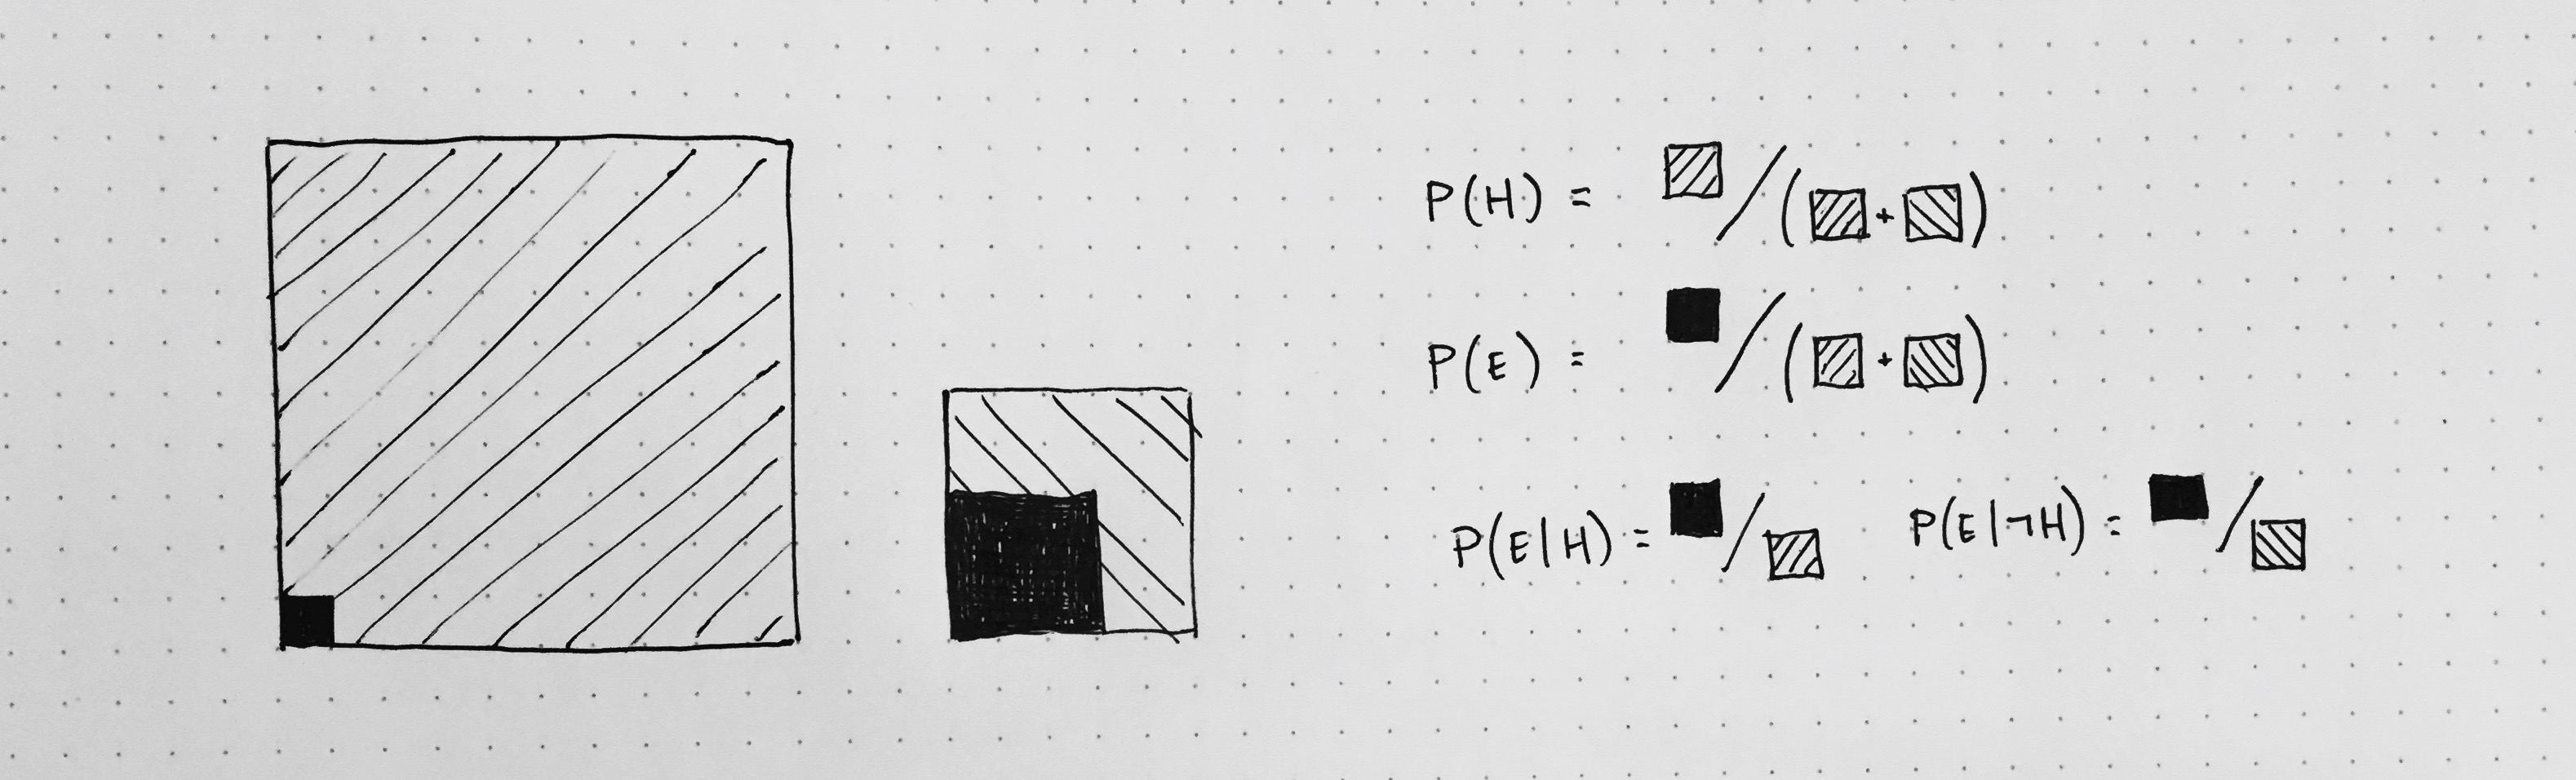 P(H) = ▨ / (▨ + ▧)
P(E) = ■ / (▨ + ▧)
P(E|H) = ■ / ▨ P(E|¬H) = ■ / ▧